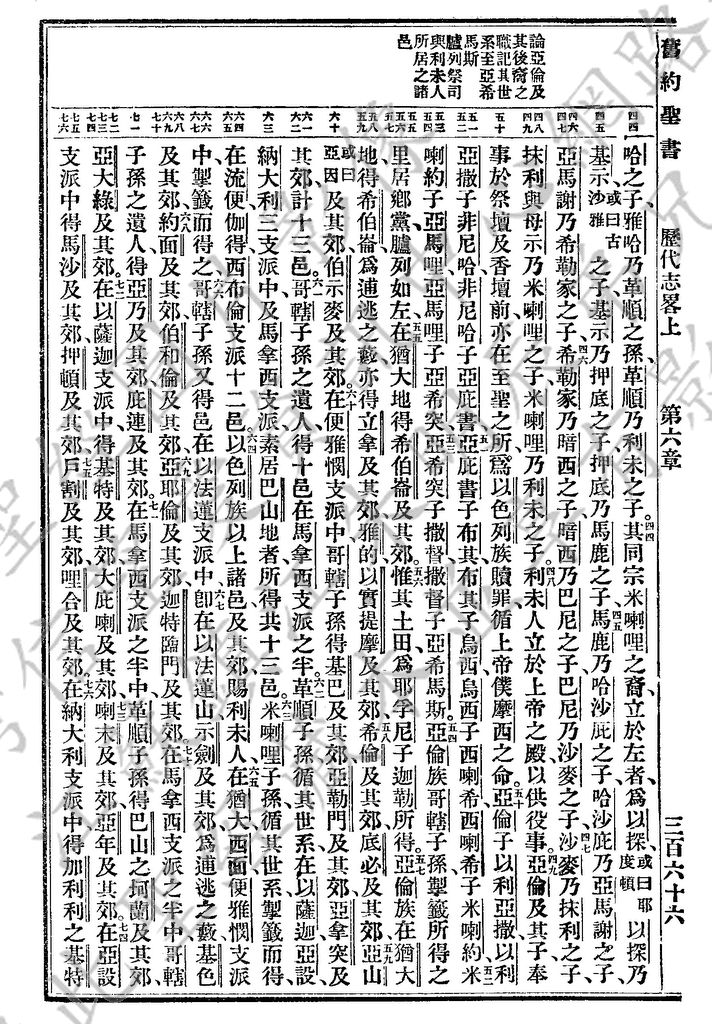 舊約聖書 歷代志畧上 第六章 三百六十六
論亞倫及
其後裔之
職記其世
系至亞希
馬斯
臚列祭司
與利未人
所居之諸
邑
哈之子雅哈乃革順之孫革順乃利未之子其同宗米唎哩之裔立於左者爲以探或曰耶度頓以探乃
基示或曰古沙雅之子基示乃押底之子押底乃馬鹿之子馬鹿乃哈沙庇之子哈沙庇乃亞馬謝之子
亞馬謝乃希勒家之子希勒家乃暗西之子暗西乃巴尼之子巴尼乃沙麥之子沙麥乃抹利之子
抹利與母示乃米唎哩之子米唎哩乃利未之子利未人立於上帝之殿以供役事亞倫及其子奉
事於祭壇及香壇前亦在至聖之所爲以色列族贖罪循上帝僕摩西之命亞倫子以利亞撒以利
亞撒子非尼哈非尼哈子亞庇書亞庇書子布其布其子烏西烏西子西喇希西喇希子米喇約米
喇約子亞馬哩亞馬哩子亞希突亞希突子撒督撒督子亞希馬斯亞倫族哥轄子孫掣籤所得之
里居鄉黨臚列如左在猶大地得希伯崙及其郊惟其土田爲耶孚尼子迦勒所得亞倫族在猶大
地得希伯崙爲逋逃之藪亦得立拿及其郊雅的以實提摩及其郊希倫及其郊底必及其郊亞山
或曰亞因及其郊伯示麥及其郊在便雅憫支派中哥轄子孫得基巴及其郊亞勒門及其郊亞拿突及
其郊計十三邑哥轄子孫之遺人得十邑在馬拿西支派之半革順子孫循其世系在以薩迦亞設
納大利三支派中及馬拿西支派素居巴山地者所得共十三邑米唎哩子孫循其世系掣籤而得
在流便伽得西布倫支派十二邑以色列族以上諸邑及其郊賜利未人在猶大西面便雅憫支派
中掣籤而得之哥轄子孫又得邑在以法蓮支派中卽在以法蓮山示劍及其郊爲逋逃之藪基色
及其郊約面及其郊伯和倫及其郊亞耶倫及其郊迦特臨門及其郊在馬拿西支派之半中哥轄
子孫之遺人得亞乃及其郊庇連及其郊在馬拿西支派之半中革順子孫得巴山之抲蘭及其郊
亞大綠及其郊在以薩迦支派中得基特及其郊大庇喇及其郊喇末及其郊亞年及其郊在亞設
支派中得馬沙及其郊押頓及其郊戶割及其郊哩合及其郊在納大利支派中得加利利之基特